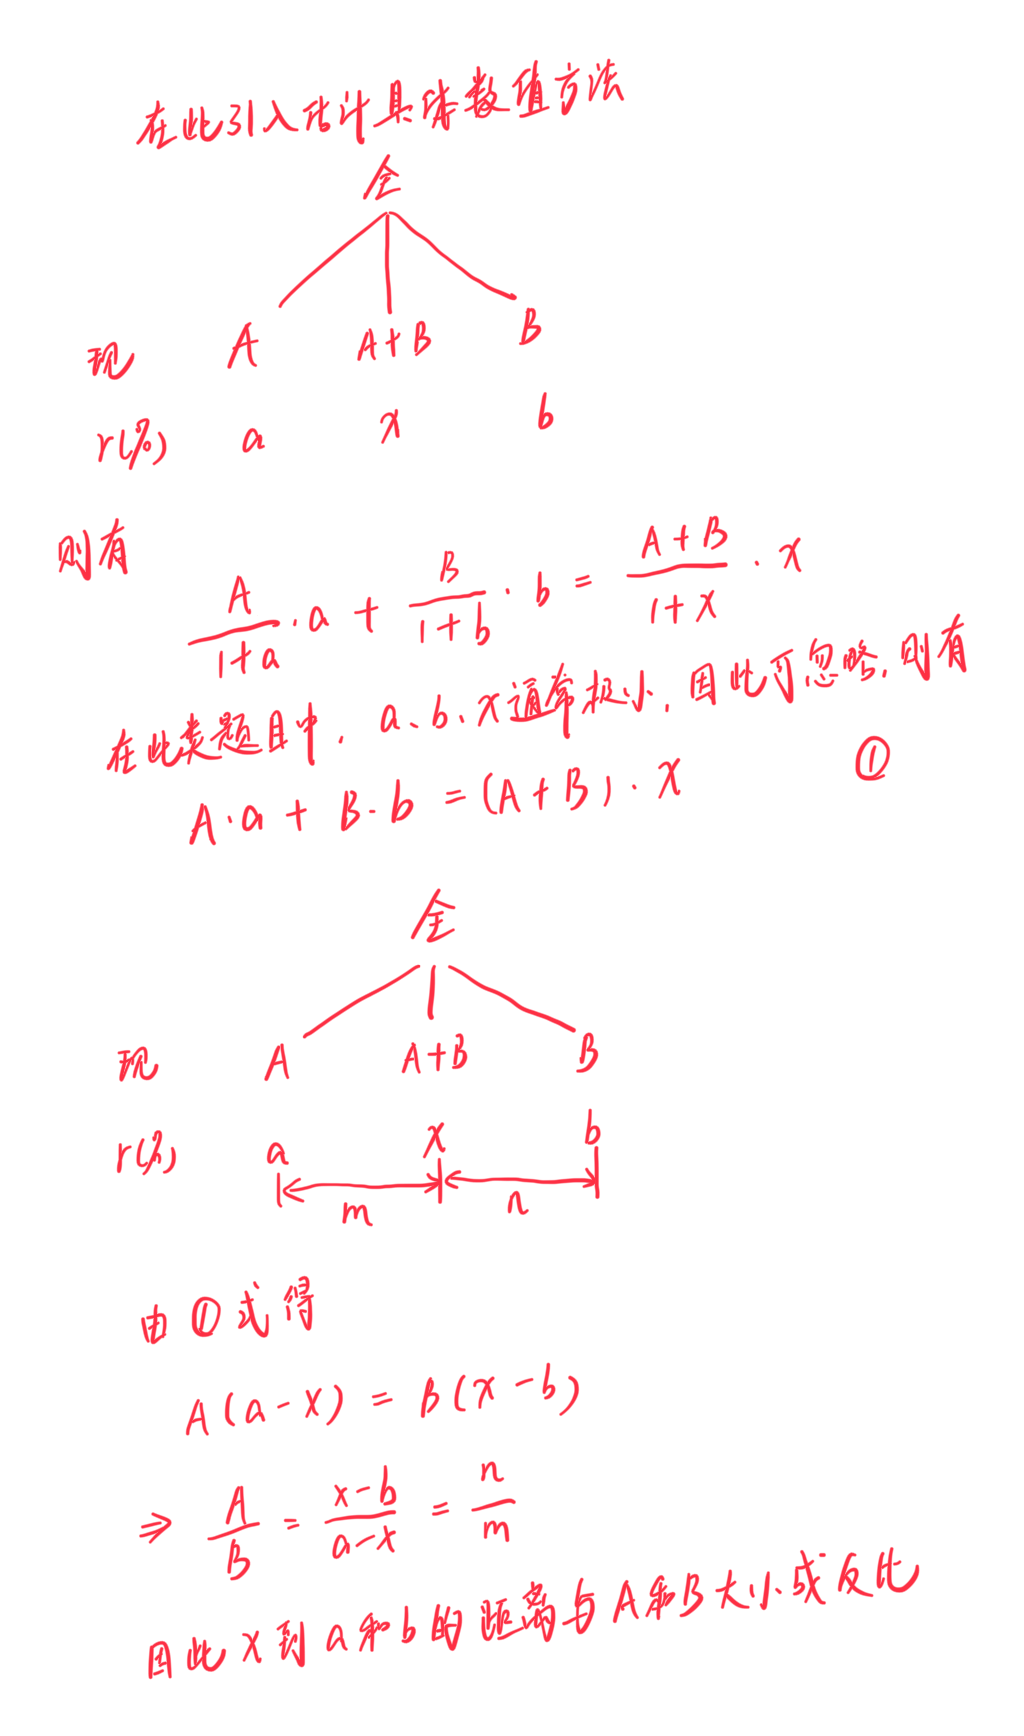 在此引入估计具体数值方法
全
现 A A+B B
r(%) a x b
则有
A/(1+a)·a + B/(1+b)·b = (A+B)/(1+x)·x
在此类题目中,a、b、x通常极小,因此可忽略,则有
A·a + B·b = (A+B)·x ①
全
现 A A+B B
r(%) a x b
m n
由①式得
A(a-x) = B(x-b)
⇒ A/B = (x-b)/(a-x) = n/m
因此x到a和b的距离与A和B大小成反比